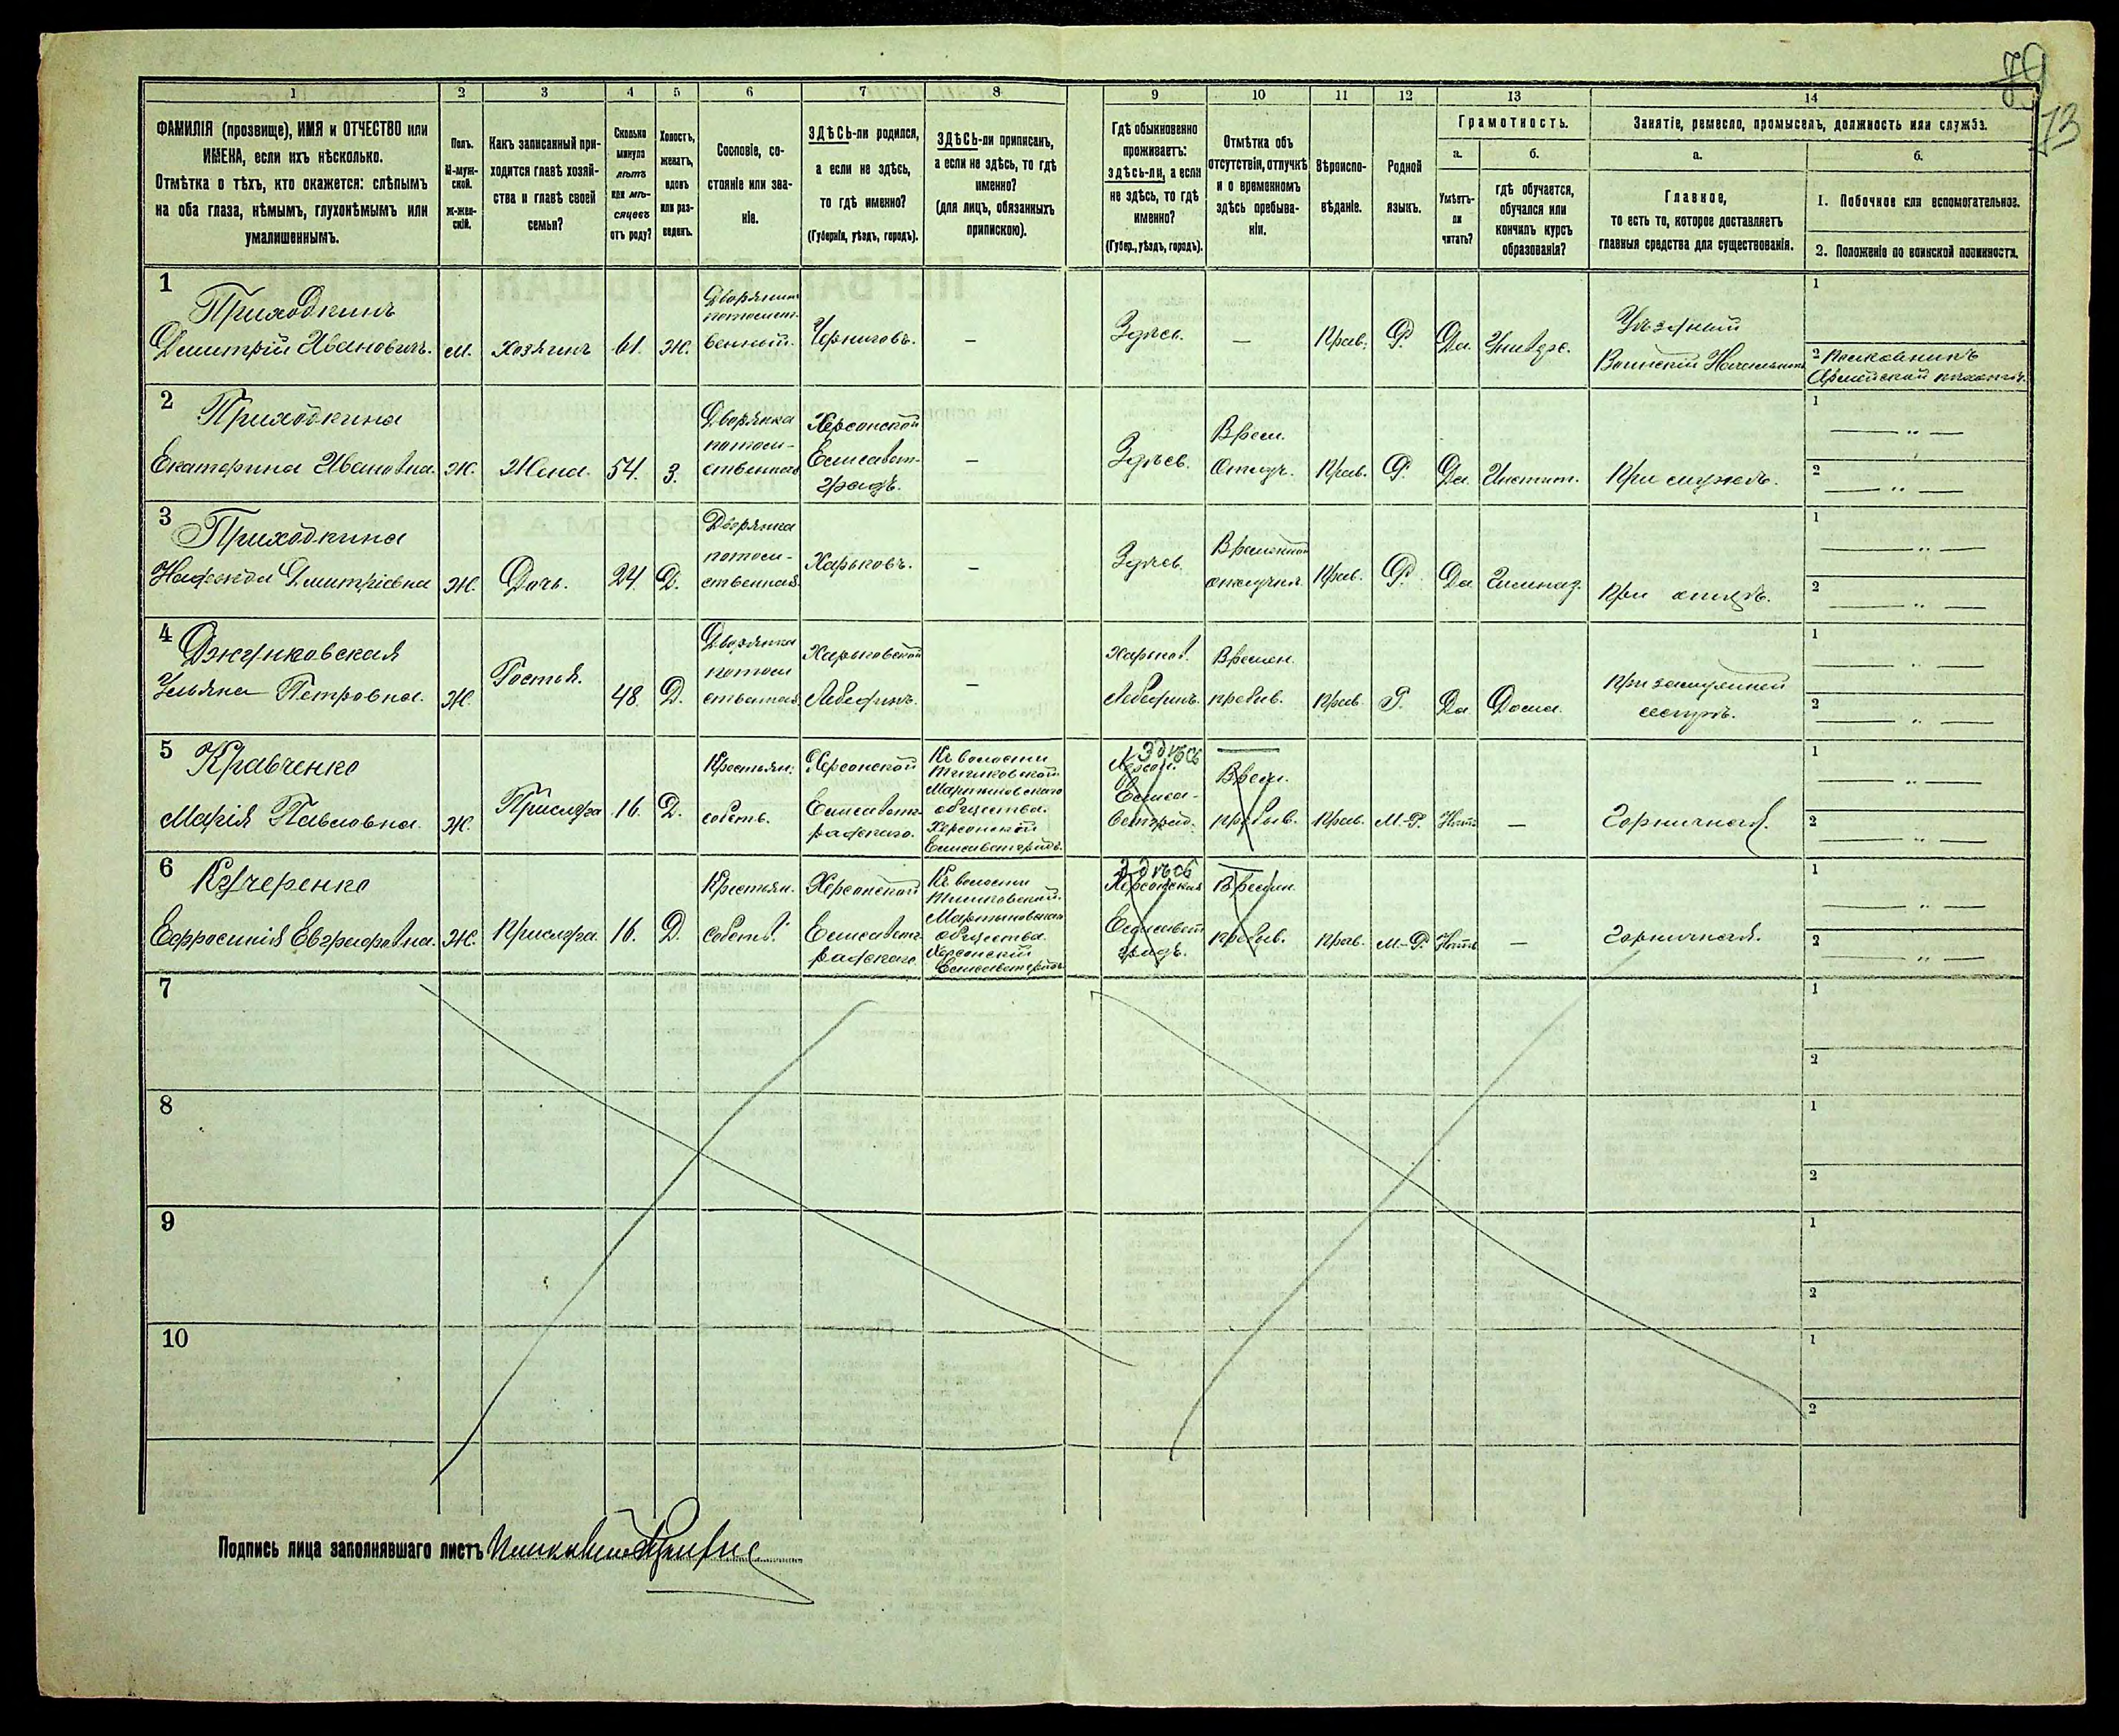 79
73
1 2 3 4 5 6 7 8 9 10 11 12 13 14
ФАМИЛІЯ (прозвище), ИМЯ и ОТЧЕСТВО или
ИМЕНА, если ихъ нѣсколько.
Отмѣтка о тѣхъ, кто окажется: слѣпымъ
на оба глаза, нѣмымъ, глухонѣмымъ или
умалишеннымъ.
Полъ.
М-муж-
ской.
Ж-жен-
скій.
Какъ записанный при-
ходится главѣ хозяй-
ства и главѣ своей
семьи?
Сколько
минуло
лѣтъ
или мѣ-
сяцевъ
отъ роду?
Холостъ,
женатъ,
вдовъ
или раз-
веденъ.
Сословіе, со-
стояніе или зва-
ніе.
ЗДѢСЬ-ли родился,
а если не здѣсь,
то гдѣ именно?
(Губернія, уѣздъ, городъ).
ЗДѢСЬ-ли приписанъ,
а если не здѣсь, то гдѣ
именно?
(для лицъ, обязанныхъ
припискою).
Гдѣ обыкновенно
проживаетъ:
здѣсь-ли, а если
не здѣсь, то гдѣ
именно?
(Губер., уѣздъ, городъ).
Отмѣтка объ
отсутствіи, отлучкѣ
и о временномъ
здѣсь пребыва-
ніи.
Вѣроиспо-
вѣданіе.
Родной
языкъ.
Грамотность.
а.
Умѣетъ-
ли
читать?
б.
гдѣ обучается,
обучался или
кончилъ курсъ
образованія?
Занятіе, ремесло, промыселъ, должность или служба.
а.
Главное,
то есть то, которое доставляетъ
главныя средства для существованія.
б.
1. Побочное или вспомогательное.
2. Положеніе по воинской повинности.
1
Приходкинъ
Дмитрій Ивановичъ.
М.
Хозяинъ
61.
Ж.
Дворянинъ
потомст-
венный.
Черниговъ.
—
Здѣсь.
—
Прав.
Р.
Да.
Уѣздный
Воинскій Начальникъ
1
2 Полковникъ
Армейской пѣхоты.
2
Приходкина
Екатерина Ивановна.
Ж.
Жена.
54.
З.
Дворянка
потом-
ственная
Херсонской
Елисавет-
градъ.
—
Здѣсь.
Врем.
Отлуч.
Прав.
Р.
Да.
Инстит.
При мужѣ.
1
— „ —
2
— „ —
3
Приходкина
Надежда Дмитріевна
Ж.
Дочь.
24.
Д.
Дворянка
потом-
ственная.
Харьковъ.
—
Здѣсь
Временной
отлучкѣ
Прав.
Р.
Да
Гимназ.
При отцѣ.
1
— „ —
2
— „ —
4
Джунковская
Ульяна Петровна.
Ж.
Гостья.
48.
Д.
Дворянка
потом
ственная
Харьковской
Лебединъ.
—
Харьков.
Лебединъ.
Времен.
пребыв.
Прав.
Р.
Да
Дома.
При замужней
сестрѣ.
1
— „ —
2
— „ —
5
Кравченко
Марія Павловна.
Ж.
Прислуга
16.
Д.
Крестьян.
собств.
Херсонской
Елисаветг-
радскаго.
Къ волости
Мартыновскаго
общества.
Херсонской
Елисаветград.
Здѣсь
Херсон.
Елиса-
ветград.
—
Врем.
пребыв.
Прав.
М.-Р.
Нѣтъ
—
Горничная.
1
— „ —
2
— „ —
6
Кучеренко
Ефросинія Евграфовна.
Ж.
Прислуга.
16.
Д.
Крестьян.
Собств.
Херсонской
Елисаветг-
радскаго
Къ волости
Мартыновскаго
общества.
Херсонской
Елисаветград.
Здѣсь
Херсонская
Елисавет
градъ.
—
Времен.
пребыв.
Прав.
М.-Р.
Нѣтъ
—
Горничная.
1
— „ —
2
— „ —
7
1
2
8
1
2
9
1
2
10
1
2
Подпись лица заполнявшаго листъ Полковникъ